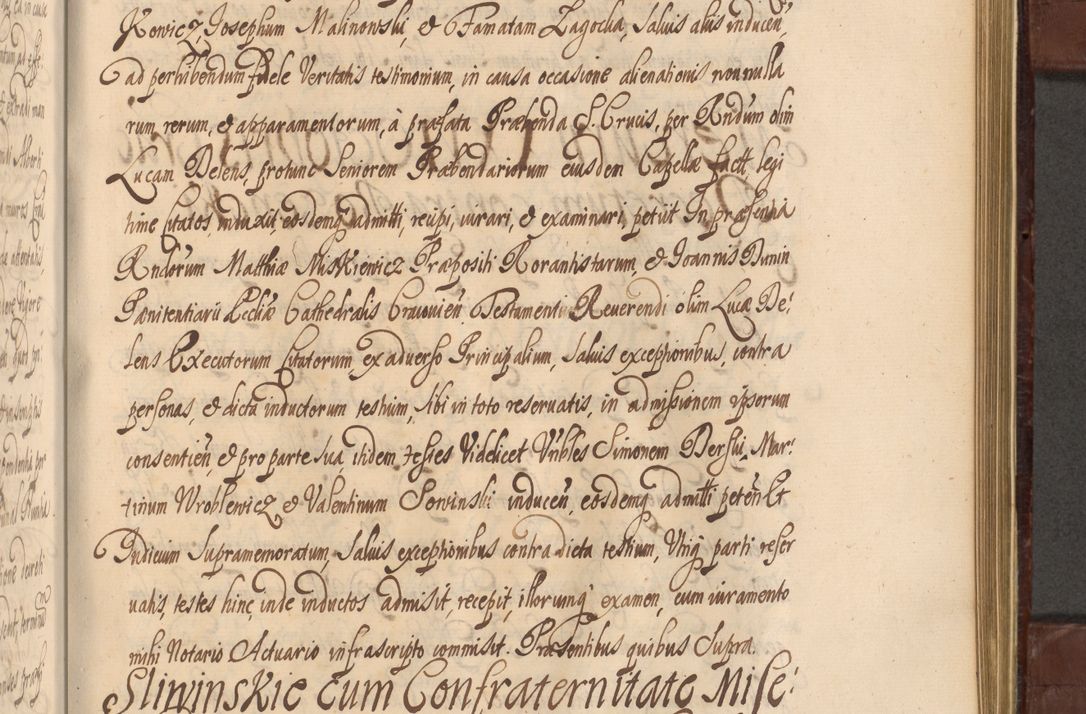 Kowicz, Josephum Malinowski, & Famatam Zagocka, salvis aliis inducen,
ad perhibendum fidele Veritatis testimonium, in causa occasione alienationis nonnulla
rum, rerum, & apparamentorum, à præfata Præbenda S. Crucis, per Rndum olim
Lucam Delens, protunc Seniorem Præbendariorum eiusdem Capellæ factt legi
time Citatos, induxit, eosdemq admitti, recipi, iurari, & examinari, petiit In præsentia
Rndorum Matthiæ Miskiewicz Præpositi Rorantistarum, & Joannis Dunin
Pænitentiarii Eccliæ Cathedralis Cracovien, Testamenti Reverendi olim Lucæ De:
lens Executorum Citatorum, ex adverso Principalium, salvis exceptionibus, contra
personas, & dicta inductorum testium, sibi in toto reservatis, in admissionem ipsorum
consentien, & pro parte sua, itidem testes Videlicet Vnbles Simonem Derski, Mar:
tinum Wroblewicz & Valentinum Sowinski inducen, eosdemq admitti peten Et
Judicium Supramemoratum, salvis exceptionibus contra dicta testium, Vtriq parti reser
vatis, testes hinc, inde inductos admisit, recepit, illorumq examen, cum iuramento
mihi Notario Actuario infrascripto commisit. Præsentibus quibus Supra.
Sliwinskie cum Confraternitate Mise: